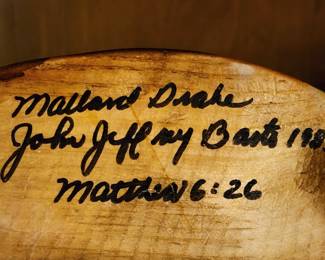 Mallard Drake
John Jeffrey Barts
Matthew 6:26